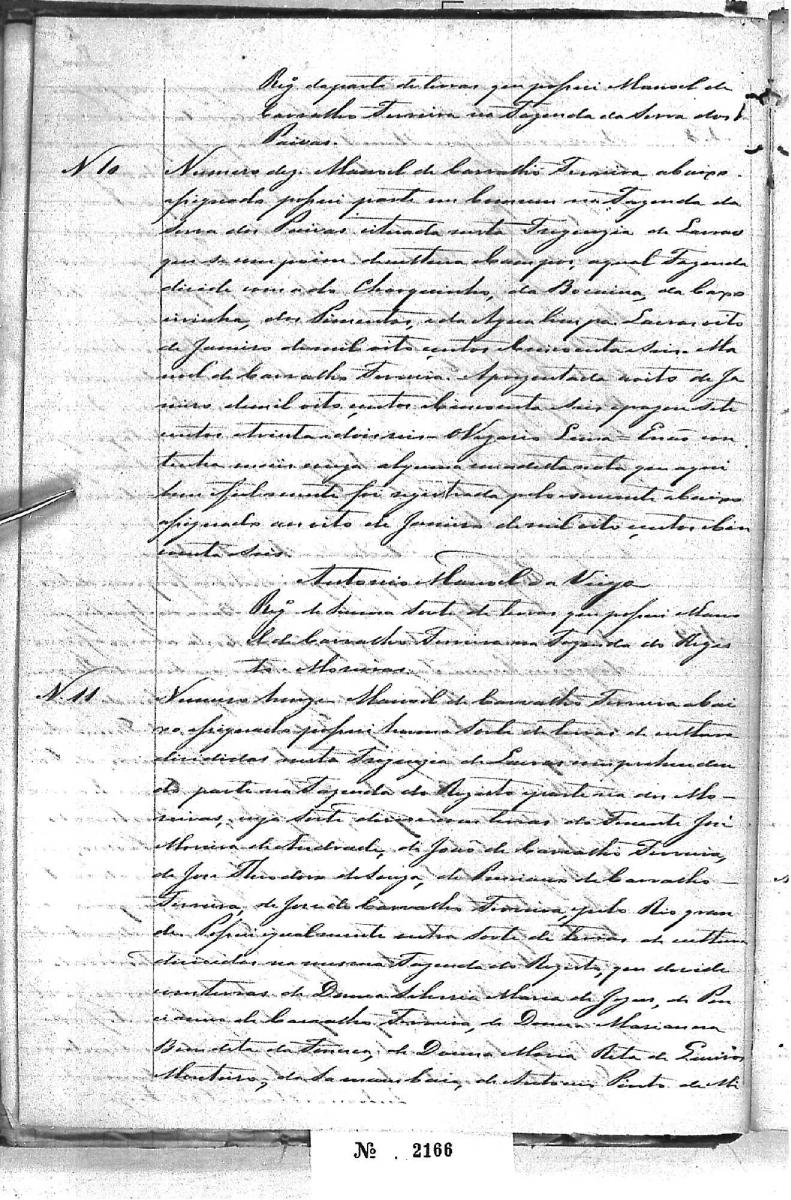 Reg. da parte de terras que possui Manoel de
Carvalho Ferreira na Fazenda da Serra dos
Paivas.
N 10 Numero dez. Manoel de Carvalho Ferreira abaixo
assignado possui parte em commum na Fazenda da
Serra dos Paivas situada nesta Freguezia de Lavras
que se compoem de cultura e campos, a qual Fazenda
divide com a do Chorquinho, da Bocaina, da Capo
eirinha, dos Pimentas, e da Agua limpa. Lavras oito
de Janeiro de mil oito centos e cincoenta e seis. Ma
noel de Carvalho Ferreira. Aprezentada a oito de Ja
neiro de mil oito centos e cincoenta e seis e pagou sete
centos e trinta e dois reis. O Vigario Luna = E não con
tinha mais couza alguma em a dita nota que aqui
bem e fielmente foi registrada pelo escrevente abaixo
assignado aos oito de Janeiro de mil oito centos e cin
coenta e seis.
Antonio Manoel da Veiga
Reg. de huma sorte de terras que possui Mano
el de Carvalho Ferreira na Fazenda do Regis
to e Moreiras.
N. 11 Numero honze. Manoel de Carvalho Ferreira abai
xo assignado possui huma sorte de terras de cultura
divididas nesta Freguezia de Lavras comprehenden
do parte na Fazenda do Registo e parte na dos Mo-
reiras, cuja sorte divide com terras do Tenente José
Moreira de Andrade, de João de Carvalho Ferreira,
de José Theodoro de Souza, de Ponciano de Carvalho
Ferreira, de José de Carvalho Ferreira, e pelo Rio gran
de. Possui igualmente outra sorte de terras de cultura
divididas na mesma Fazenda do Registo, que divide
com terras de Donna Silveria Maria de Jezus, de Pon
ciano de Carvalho Ferreira, de Donna Marianna
Benedita da Fonseca, de Donna Maria Rita de
Monteiro, da Samambaia, de Antonio Pinto de Mi
Nº 2166